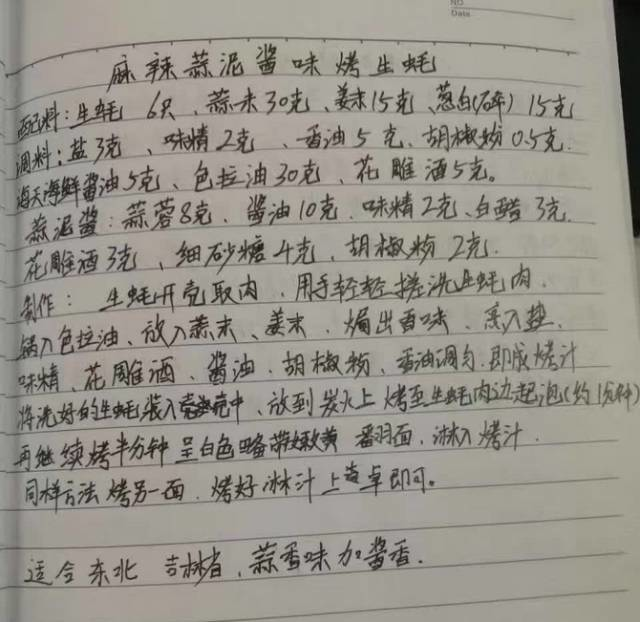 NO.
Date
麻辣蒜泥酱味烤生蚝
配料：生蚝 6只、蒜末30克、姜末15克、葱白(碎) 15克
调料：盐3克、味精2克、香油5克、胡椒粉0.5克.
海天海鲜酱油5克、色拉油30克、花雕酒5克。
蒜泥酱：蒜蓉8克、酱油10克、味精2克、白醋3克.
花雕酒3克、细砂糖4克、胡椒粉2克.
制作： 生蚝开壳取肉、用手轻轻搓洗生蚝肉.
锅入色拉油、放入蒜末、姜末、焗出香味、烹入盐、
味精、花雕酒、酱油、胡椒粉、香油调匀.即成烤汁
将洗好的生蚝装入壳中、放到炭火上烤至生蚝肉边起泡(约1分钟)
再继续烤半分钟 呈白色略带嫩黄 翻面、淋入烤汁.
同样方法烤另一面.烤好淋汁上桌即可。
适合东北 吉林省、蒜香味加酱香.